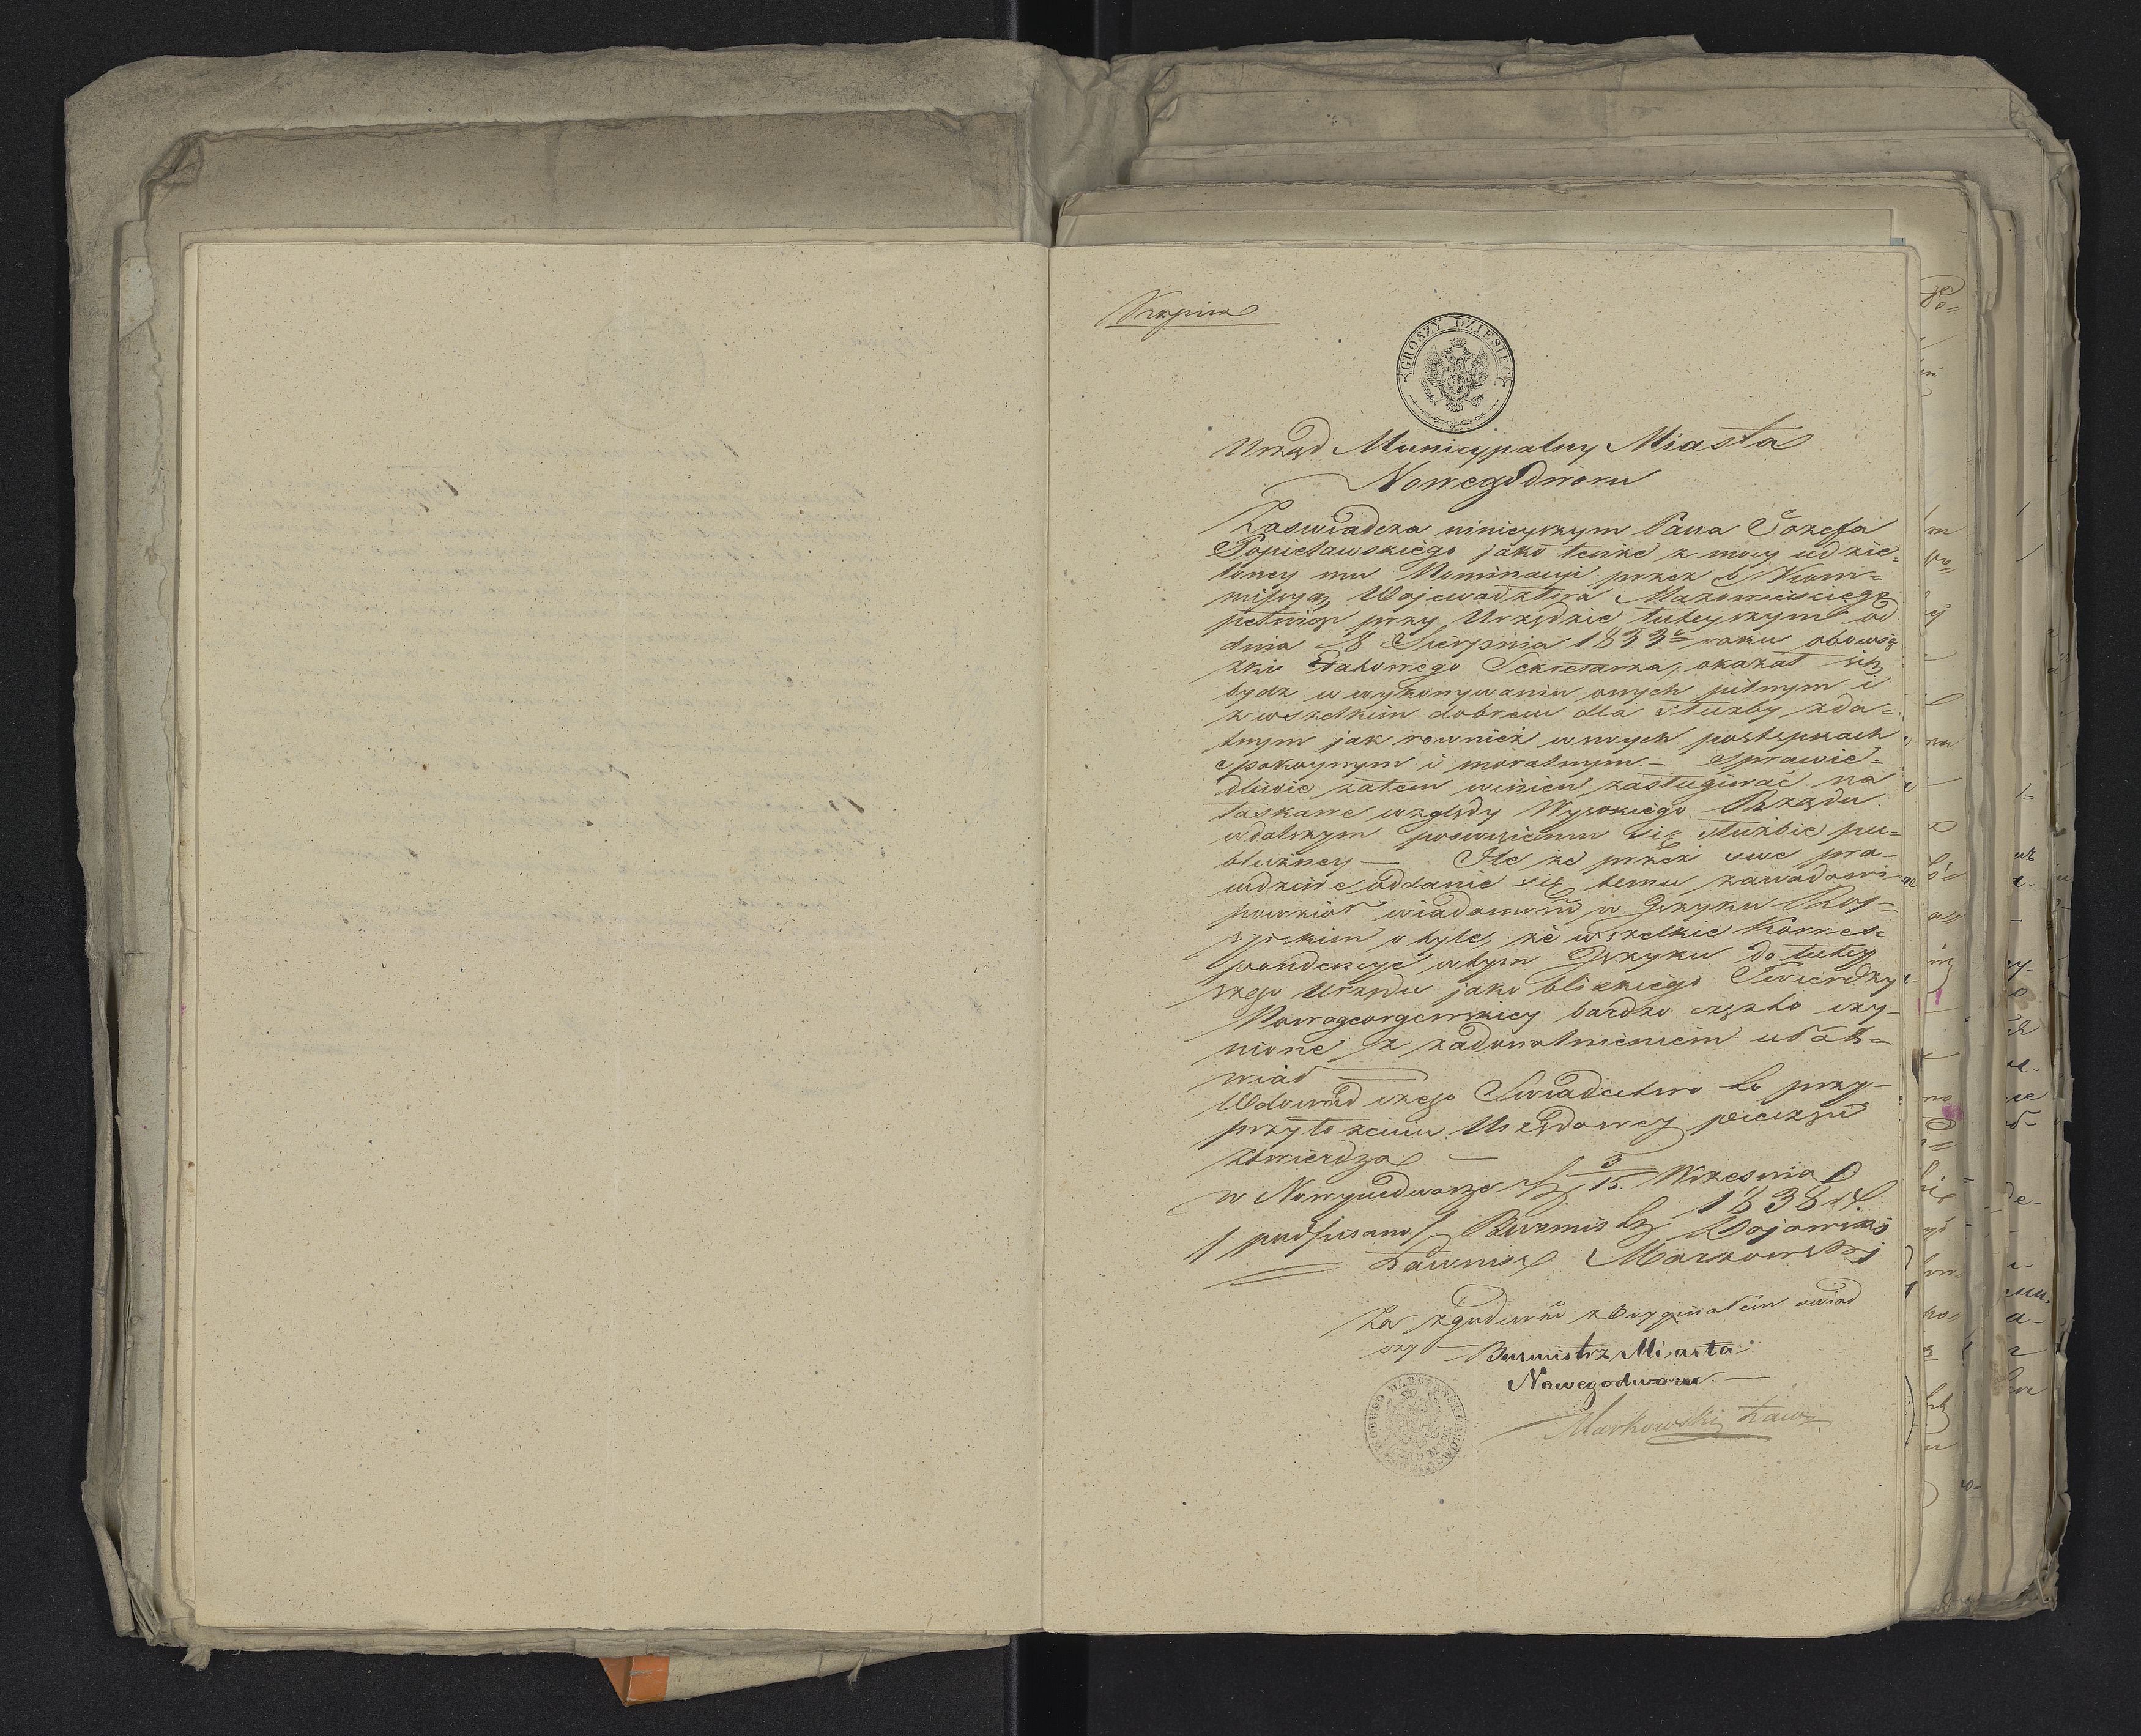 Kopija
GROSZY DZIESIĘĆ
Urząd Municypalny Miasta
Nowegodworu
Zaswiadcza ninieyszym Pana Jozefa
Popieławskiego jako tenże z mocy udzie=
loney mu Nominacyi przez b. Kom=
missyą Wojewodztwa Mazowieckiego
pełniąc przy Urzędzie tuteyszym od
dnia 8 Sierpnia 1833 roku obowią
zki Etatowego Sekretarza, okazał się
bydz w wykonywaniu onych pilnym i
z wszelkim dobrem dla służby zda=
tnym jak rownież w swych postępkach
spokoynym i moralnym. — Sprawie=
dliwie zatem winien zasługiwać na
łaskawe względy Wysokiego Rządu
w dalszym poswięceniu się służbie pu=
bliczney — Ile że przez swe pra-
wdziwe oddanie się temu zawodowi
powziął wiadomość w Języku Ros=
syiskim o tyle, że wszelkie Korres=
pondencye w tym Języku do tutey
szego Urzędu jako bliskiego Twierdzy
Nowogeorgewskiey bardzo często czy-
nione z zadowolnieniem ułat=
wiał
W dowod czego Swiadectwo to przy
przyłożeniu Urzędowey pieczęci
Stwierdza —
w Nowymdworze d. 3/15. Wrzesnia
1838 r.
/ podpisano / Burmistrz
Ławnik Markowski
Za zgodność z Oryginałem swiad
czy — Burmistrz Miasta
Nowegodworu. —
Markowski Ław.